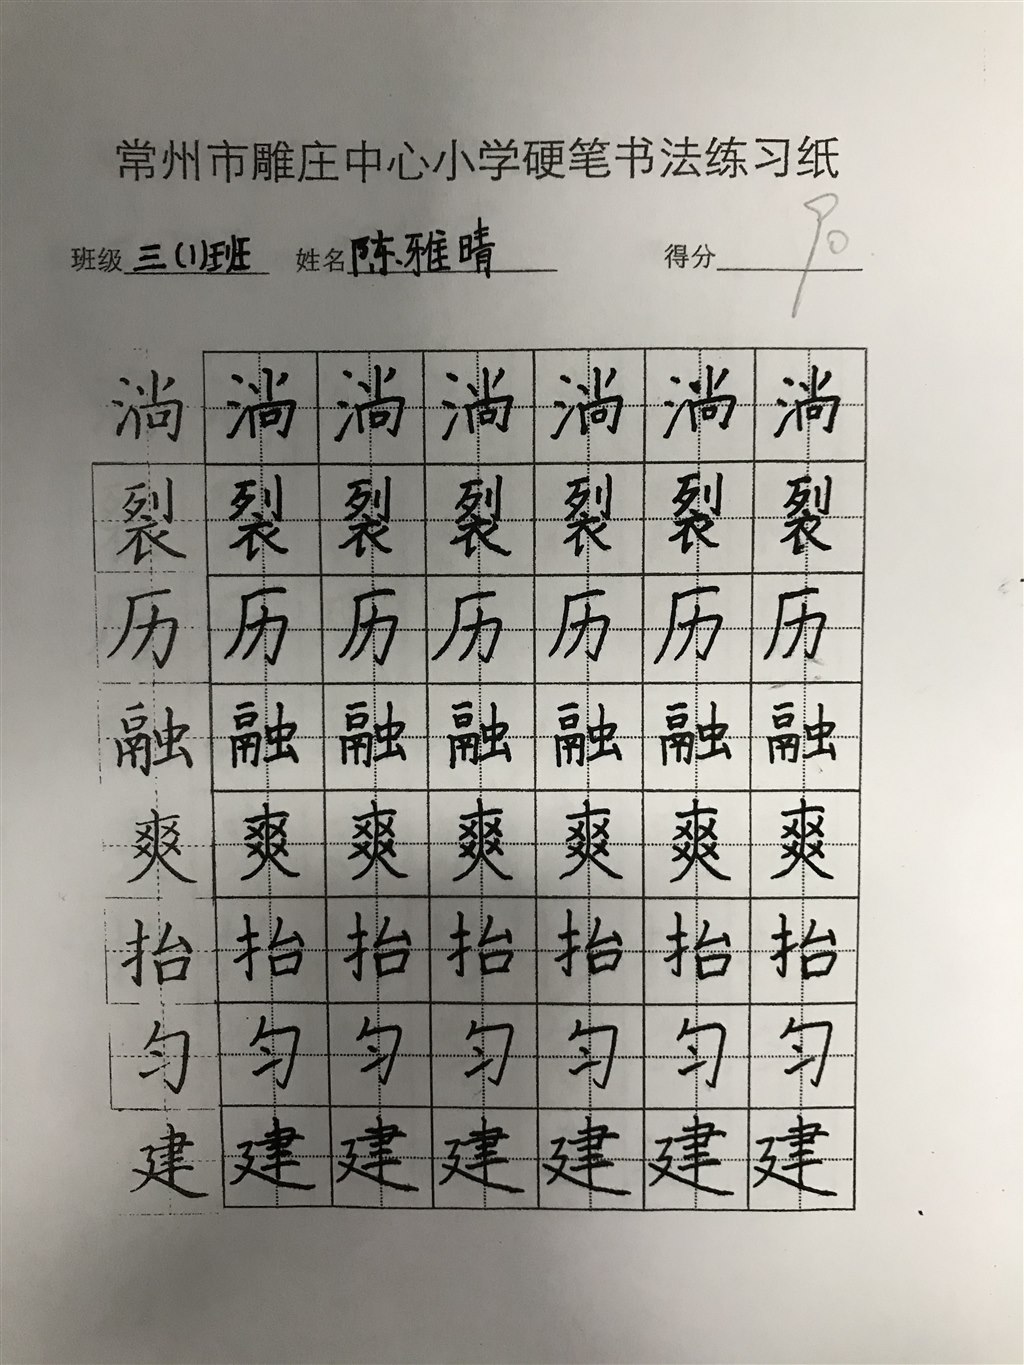 常州市雕庄中心小学硬笔书法练习纸
班级 三(1)班 姓名 陈雅晴 得分 90
淌 淌 淌 淌 淌 淌 淌
裂 裂 裂 裂 裂 裂 裂
历 历 历 历 历 历 历
融 融 融 融 融 融 融
爽 爽 爽 爽 爽 爽 爽
抬 抬 抬 抬 抬 抬 抬
匀 匀 匀 匀 匀 匀 匀
建 建 建 建 建 建 建